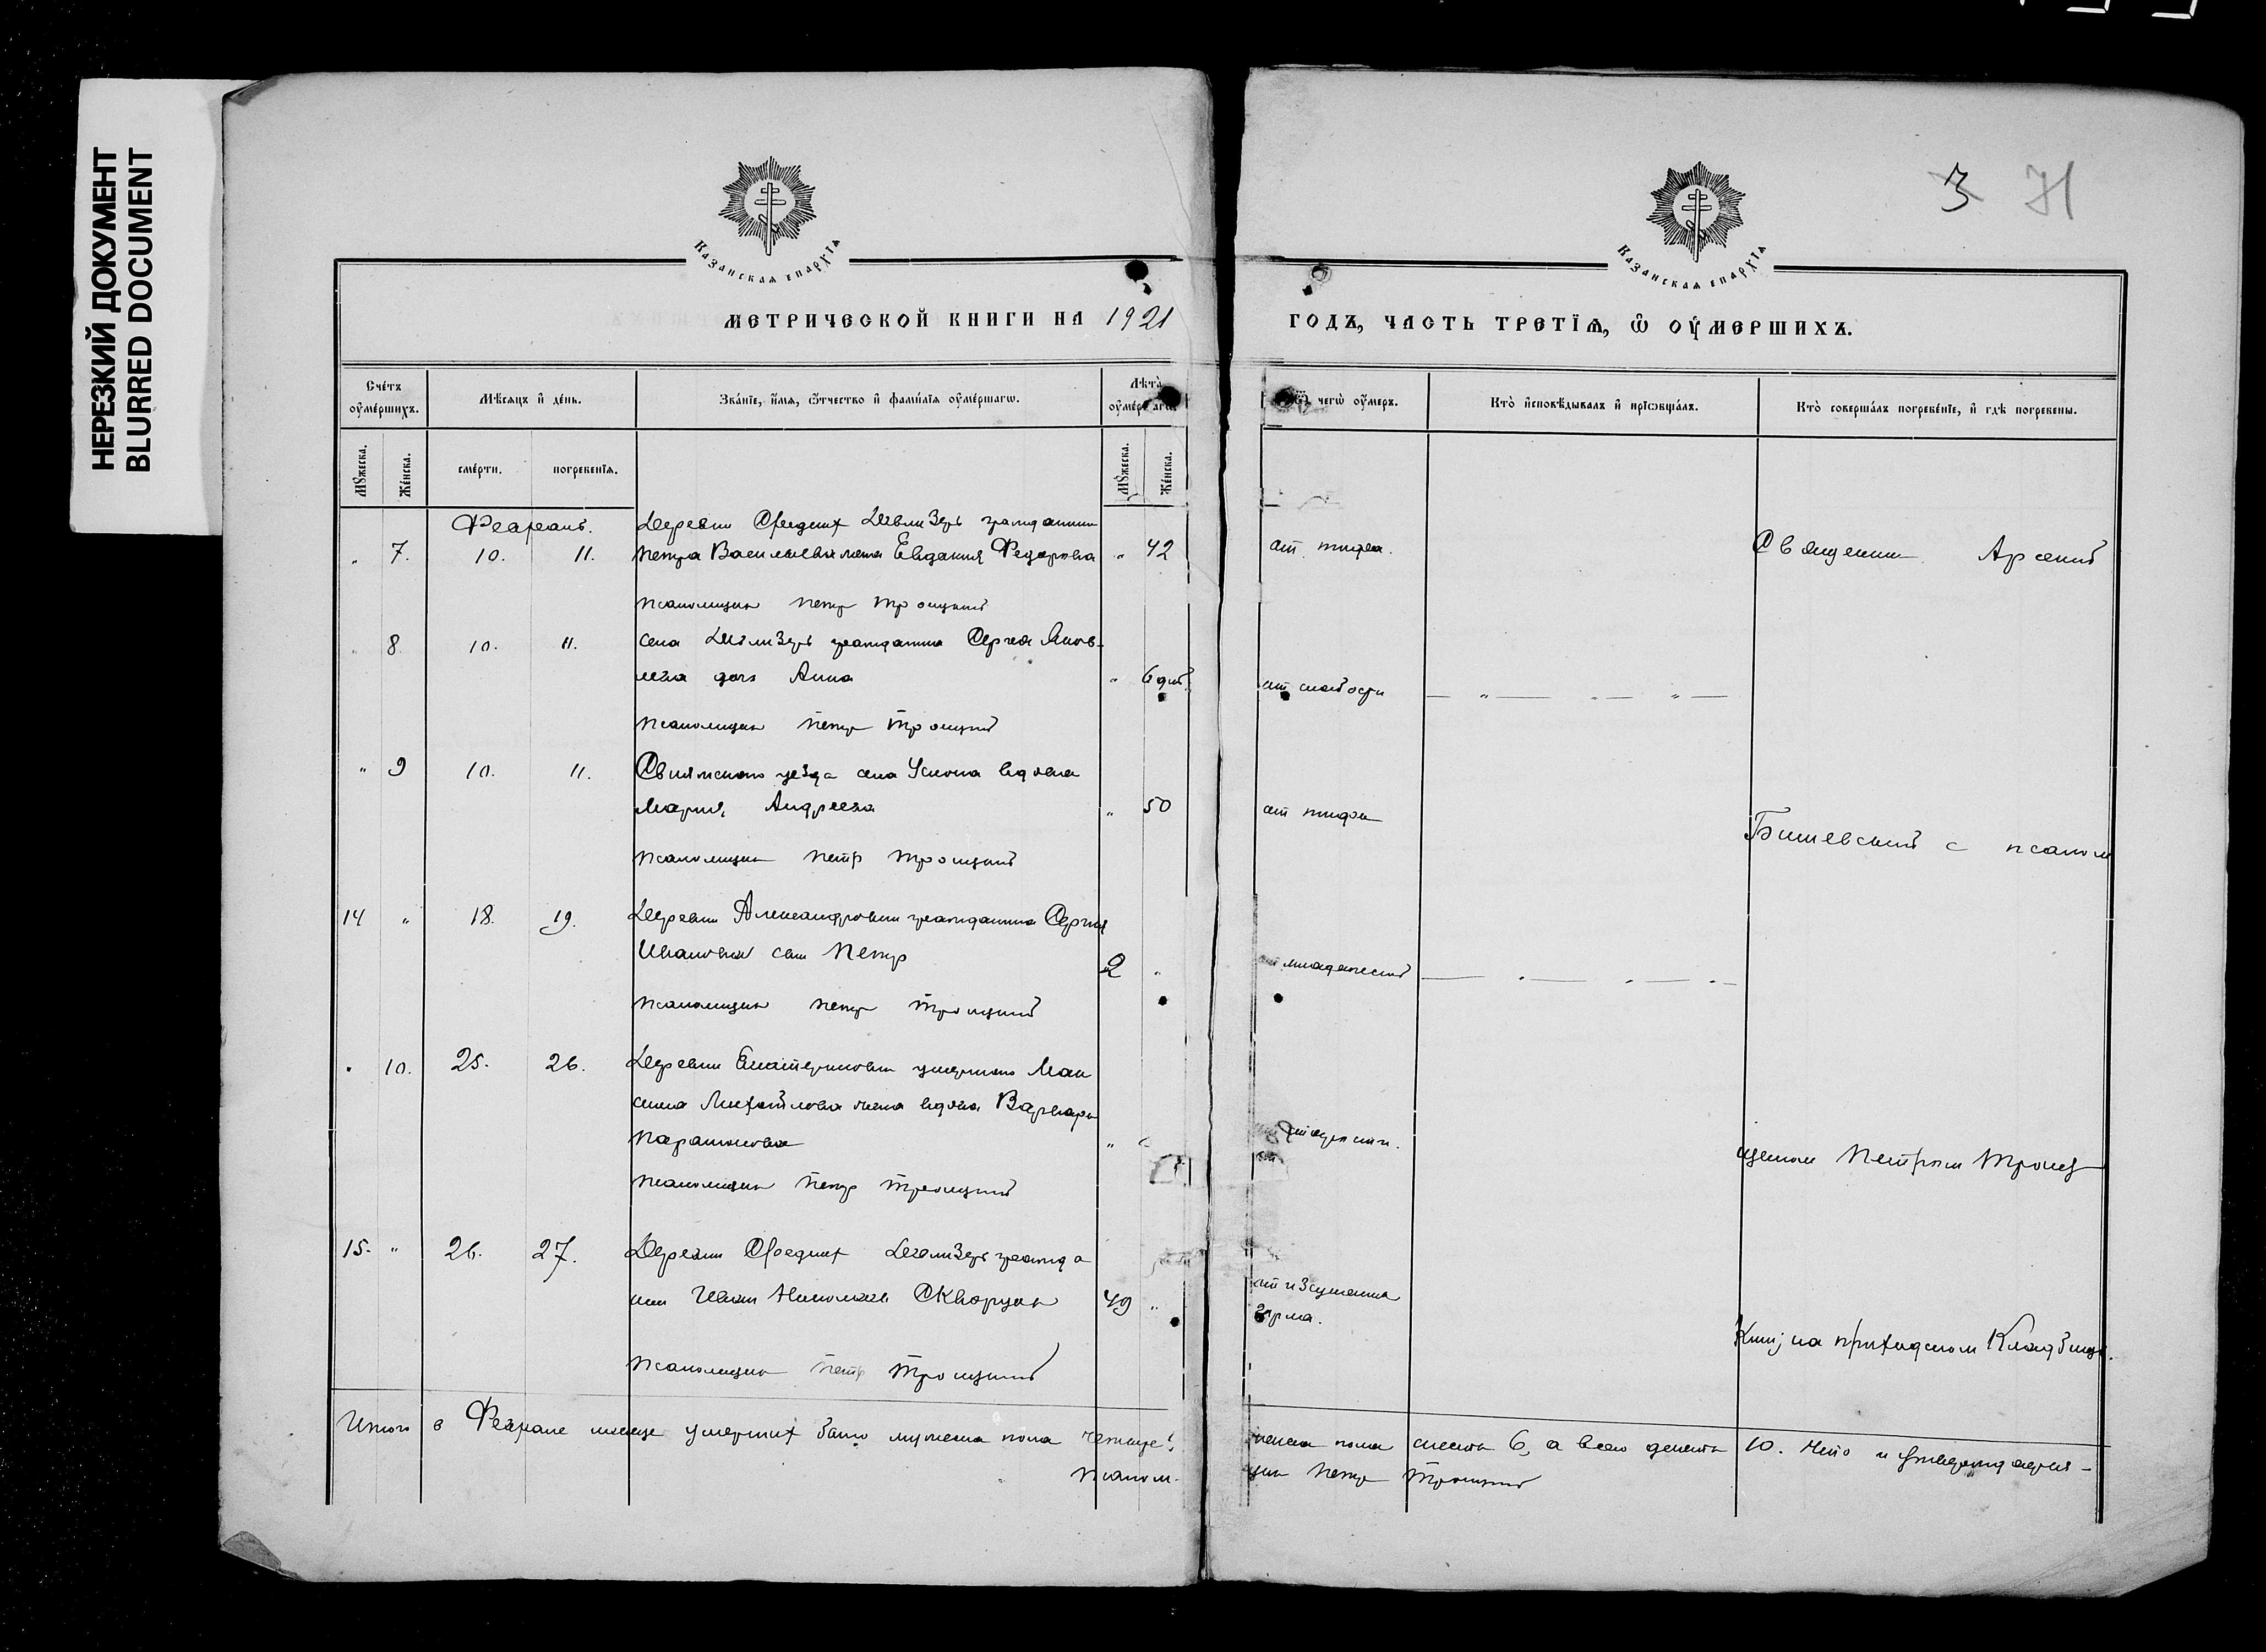 НЕРЕЗКИЙ ДОКУМЕНТ
BLURRED DOCUMENT
3 71
Казанская епархїѧ
Казанская епархїѧ
МЕТРИЧЕСКОЙ КНИГИ НА 1921
ГОДЪ, ЧАСТЬ ТРЕТЇѦ, Ѡ ОУМЕРШИХЪ.
Счетъ оумершихъ.
Мѣсяцъ и день.
Званїе, имя, отчество и фамилїя оумершагѡ.
Лѣта оумершагѡ
Ѿ чегѡ оумеръ.
Кто исповѣдывалъ и прїобщалъ.
Кто совершалъ погребенїе, и гдѣ погребены.
Мꙋжеска.
Женска.
смерти.
погребенїя.
Мꙋжеска.
Женска.
Февраль.
Деревни Средних гражданина
" 7. 10. 11. Петра Васильева жена Евдокия Федорова " 42 от тифа. Священник Арсений
псаломщик Петр Троицкий
" 8 10. 11. Села гражданина Сергея Яков-
лева дочь Анна " 6 дней от слабости
псаломщик Петр Троицкий
" 9 10. 11. Свияжского уезда села Услона вдова
Мария Андреева " 50 от тифа
с псалом
псаломщик Петр Троицкий
14 " 18. 19. Деревни Александровки гражданина Сергея
Иванова сын Петр 2 " младенческой
псаломщик Петр Троицкий
" 10. 25. 26. Деревни Екатериновки умершего Мак
сима Михайлова жена вдова Варвара
Парамонова "
щиком Петром Троиц
псаломщик Петр Троицкий
15. " 26. 27. Деревни Средних гражда
нин Иван Николаев Скворцов 49 "
от изсушения
горла.
ким; на приходском Кладбище.
псаломщик Петр Троицкий
Итого в Феврале месяце умерших было мужеска пола четыре 4,
женска пола шесть 6, а всего десять 10. Что и утверждается -
псалом-
щик Петр Троицкий